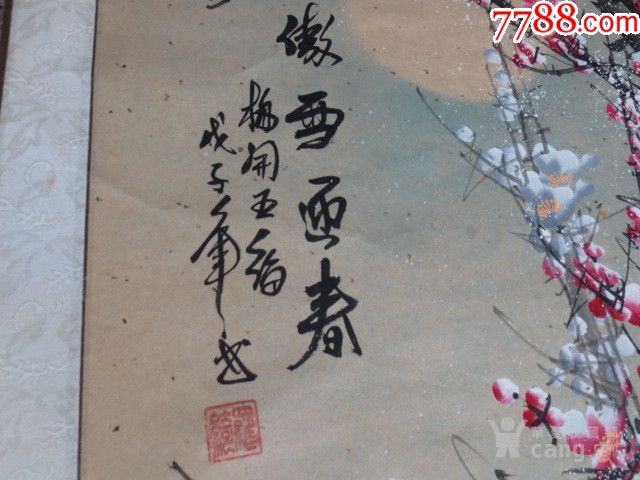 傲雪迎春
梅開五福
戊子年
7788.com
cang.com